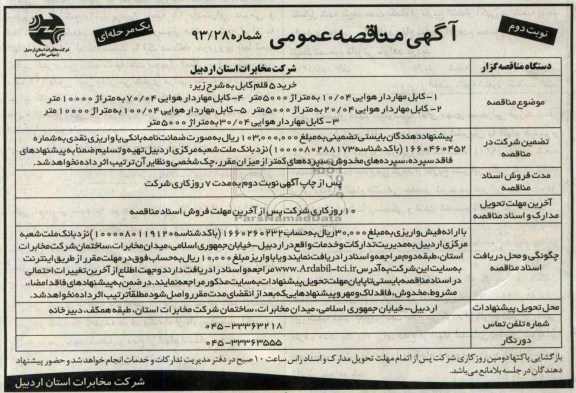 نوبت دوم
آگهی مناقصه عمومی شماره ۹۳/۲۸
یک مرحله‌ای
شرکت مخابرات استان اردبیل
(سهامی خاص)
دستگاه مناقصه گزار
شرکت مخابرات استان اردبیل
موضوع مناقصه
خرید ۵ قلم کابل به شرح زیر:
۱- کابل مهاردار هوایی ۱۰/۰۴ به متراژ ۵۰۰۰ متر ۴- کابل مهاردار هوایی ۷۰/۰۴ به متراژ ۱۰۰۰۰ متر
۲- کابل مهاردار هوایی ۲۰/۰۴ به متراژ ۵۰۰۰ متر ۵- کابل مهاردار هوایی ۱۰۰/۰۴ به متراژ ۱۰۰۰۰ متر
۳- کابل مهاردار هوایی ۳۰/۰۴ به متراژ ۵۰۰۰ متر
تضمین شرکت در مناقصه
پیشنهاد دهندگان بایستی تضمینی به مبلغ ۱۰۳,۰۰۰,۰۰۰ ریال به صورت ضمانت نامه بانکی یا واریزی نقدی به شماره
۱۶۶۰۴۶۰۴۵۲ (با کد شناسه ۱۰۰۰۰۸۰۲۸۸۱۷۳) نزد بانک ملت شعبه مرکزی اردبیل تهیه و تسلیم ضمناً به پیشنهادهای
فاقد سپرده، سپرده‌های مخدوش، سپرده‌های کمتر از میزان مقرر، چک شخصی و نظایر آن ترتیب اثر داده نخواهد شد.
مدت فروش اسناد مناقصه
پس از چاپ آگهی نوبت دوم به مدت ۷ روز کاری شرکت
آخرین مهلت تحویل مدارک و اسناد مناقصه
۱۰ روز کاری شرکت پس از آخرین مهلت فروش اسناد مناقصه
چگونگی و محل دریافت اسناد مناقصه
با ارائه فیش واریزی به مبلغ ۳۰,۰۰۰ ریال به حساب ۱۶۶۰۲۶۰۲۳۲ (با کد شناسه ۱۰۰۰۰۸۰۱۱۹۱۲۰) نزد بانک ملت شعبه
مرکزی اردبیل به مدیریت تدارکات و خدمات واقع در اردبیل - خیابان جمهوری اسلامی، میدان مخابرات، ساختمان شرکت مخابرات
استان، طبقه دوم مراجعه و اسناد را دریافت نمایند و یا با واریز مبلغ ۱۰,۰۰۰ ریال به حساب فوق در مهلت مقرر از طریق اینترنت
به سایت این شرکت به آدرس www.Ardabil-tci.ir مراجعه و اسناد را دریافت دارند و جهت اطلاع از آخرین تغییرات احتمالی
در اسناد مناقصه بایستی تا پایان مهلت تحویل پیشنهادات به سایت مذکور مراجعه نمایند. در ضمن به پیشنهادهای فاقد امضاء،
مشروط، مخدوش، فاقد لاک و مهر و پیشنهادهایی که بعد از انقضای مدت مقرر واصل شود مطلقاً ترتیب اثر داده نخواهد شد.
محل تحویل پیشنهادات
اردبیل - خیابان جمهوری اسلامی، میدان مخابرات، ساختمان شرکت مخابرات استان، طبقه همکف، دبیرخانه
شماره تلفن تماس
۰۴۵-۳۳۳۶۳۲۱۸
دورنگار
۰۴۵-۳۳۳۶۳۵۵۵
بازگشایی پاکتها دومین روز کاری شرکت پس از اتمام مهلت تحویل مدارک و اسناد راس ساعت ۱۰ صبح در دفتر مدیریت تدارکات و خدمات انجام خواهد شد و حضور پیشنهاد
دهندگان در جلسه بلامانع می‌باشد.
شرکت مخابرات استان اردبیل
ParsNamadData